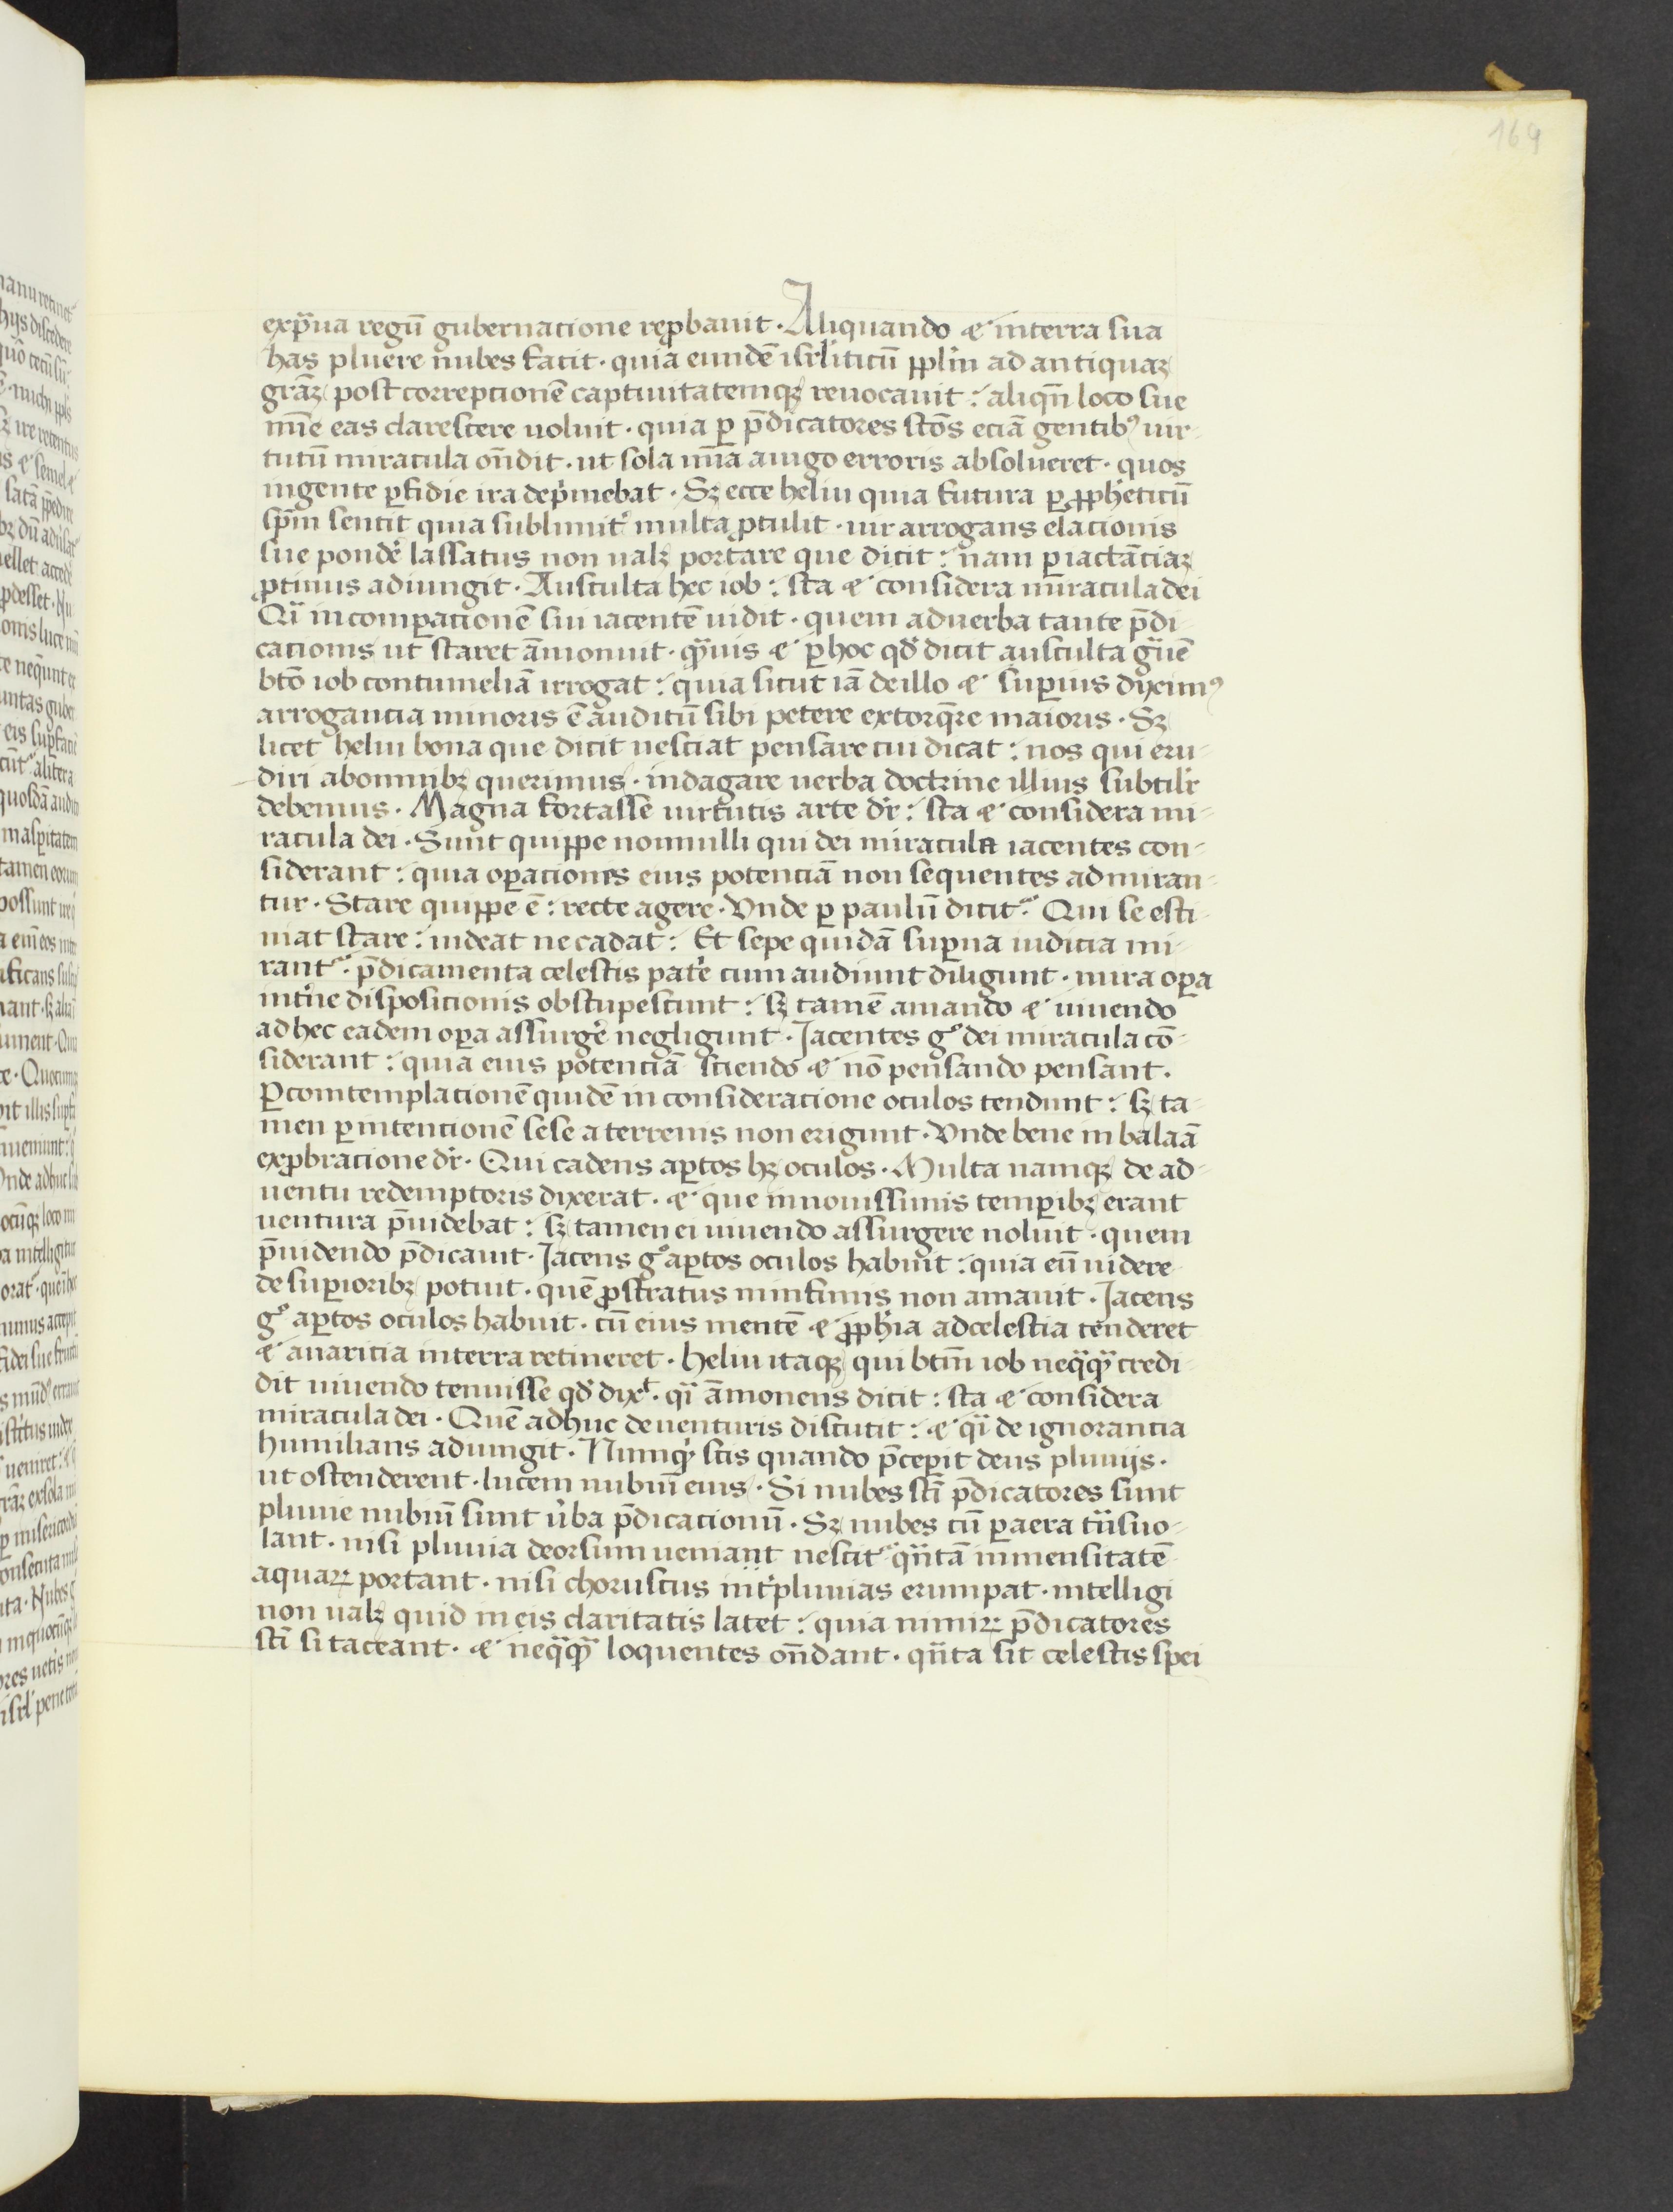 164
exp̃ua regũ gubernacione rep̱bauit · Aliquando ⁊ in terra sua
has pluere nubes facit · quia eundẽ isrl'iticũ ppl'm ad antiquaꝫ
gr̃aꝫ post correptionẽ captiuitatemqꝫ reuocauit : aliqñ loco sue
mĩe eas clarescere uoluit · quia ꝑ p̃dicatores stõs eciã gentibꝰ uir-
tutũ miracula oñdit · ut sola mĩa a iugo erroris absolueret · quos
ingente ꝑfidie ira dep'mebat · Sꝫ ecce heliu quia futura ꝑ ꝓph'eticũ
sp̃m sentit quia sublimit' multa ꝓtulit · uir arrogans elacionis
sue pond'e lassatus non ualꝫ portare que dicit : nam ꝑ iactãciaꝫ
ꝓtinus adiungit · Ausculta hec iob : sta ⁊ considera miracula dei
Qͥ in comꝑacionẽ sui iacentẽ uidit · quem ad uerba tante p̃di-
cacionis ut staret ãmonuit · qͣuis ⁊ ꝑ hoc qđ dicit ausculta gͣuẽ
btõ iob contumeliã irrogat : quia sicut iã de illo ⁊ suꝑius diximꝰ
arrogancia minoris ẽ auditũ sibi petere extorq̃re maioris · Sꝫ
licet heliu bona que dicit nesciat pensare cui dicat : nos qui eru-
diri ab omnibꝫ querimus · indagare uerba doctrine illius subtil'r
debemus · Magna fortasse uirtutis arte dr̃ : sta ⁊ considera mi-
racula dei · Sunt quippe nonnulli qui dei miracula iacentes con-
siderant : quia oꝑaciones eius potenciã non sequentes admiran-
tur · Stare quippe ẽ : recte agere · Vnde ꝑ paulũ dicit᷑ Qui se esti-
mat stare : uideat ne cadat : Et sepe quidã suꝑna iudicia mi-
rant᷑ · p̃dicamenta celestis pat'e cum audiunt diligunt · mira oꝑa
int'ne disposicionis obstupescunt : sꝫ tamẽ amando ⁊ uiuendo
ad hec eadem oꝑa assurg'e negligunt · Jacentes gͦ dei miracula cõ-
siderant : quia eius potenciã sciendo ⁊ nõ pensando pensant ·
Ꝑ comtemplacionẽ quidẽ in consideracione oculos tendunt : sꝫ ta-
men ꝑ intencionẽ sese a terrenis non erigunt · Vnde bene in balaã
exꝓbracione dr̃ · Qui cadens aꝑtos hꝫ oculos · Multa namqꝫ de ad-
uentu redemptoris dixerat · ⁊ que in nouissimis temꝑibꝫ erant
uentura p̃uidebat : sꝫ tamen ei uiuendo assurgere noluit · quem
p̃uidendo p̃dicauit · Jacens gͦ aꝑtos oculos habuit : quia eũ uidere
de suꝑioribꝫ potuit · quẽ ꝓstratus in infimis non amauit · Jacens
gͦ aꝑtos oculos habuit · cũ eius mentẽ ⁊ ꝓph'ia ad celestia tenderet
⁊ auaricia in terra retineret · heliu itaqꝫ qui btm̃ iob neqͣqͣ credi-
dit uiuendo tenuisse qđ dixͭ · qͥ ãmonens dicit : sta ⁊ considera
miracula dei · Quẽ adhuc de uenturis discutit : ⁊ qͥ de ignorancia
humilians adiungit · Numqͥ scis quando p̃ceꝑit deus pluuijs ·
ut ostenderent · lucem nubiũ eius · Si nubes stĩ p̃dicatores sunt
pluuie nubiũ sunt ũba p̃dicacionũ · Sꝫ nubes cũ ꝑ aera tͥsuo-
lant · nisi pluuia deorsum ueniant nescit᷑ qͣntã inmensitatẽ
aquaꝝ portant · nisi choruscus int' pluuias erumpat · intelligi
non ualꝫ quid in eis claritatis latet : quia nimiꝝ p̃dicatores
stĩ si taceant · ⁊ neqͣqͣ loquentes oñdant · qͣnta sit celestis spei